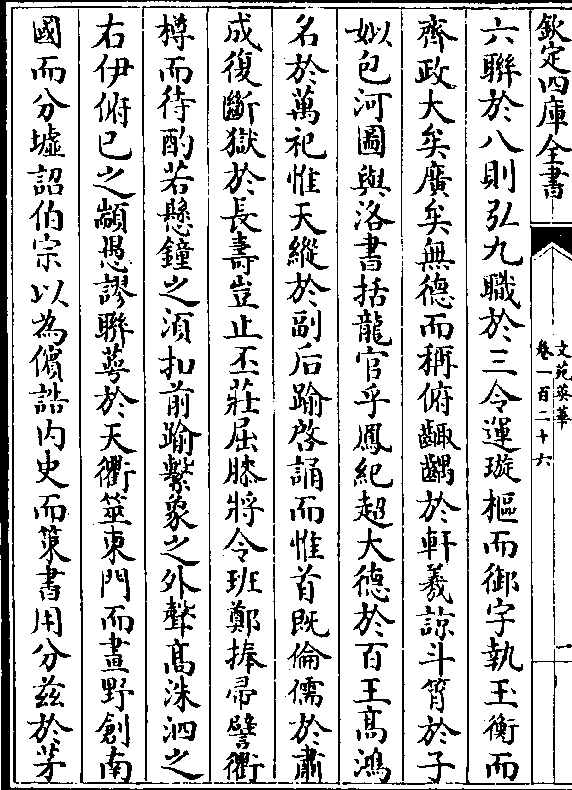 欽定四庫全書
文苑英華
卷一百二十六
一
六聯於八則弘九職於三令運璇樞而御宇執玉衡而
齊政大矣廣矣無德而稱俯齷齪於軒羲諒斗筲於子
姒包河圖與洛書括龍官乎鳳紀超大德於百王高鴻
名於萬祀惟天縱於副后踰啓誦而惟首既倫儒於肅
成復斷獄於長壽豈止丕莊屈膝將令班鄭捧帚譬衢
樽而待酌若懸鐘之須扣前踰繫象之外聲高洙泗之
右伊俯已之顓愚謬聯萼於天衢筮東門而畫野創南
國而分墟詔伯宗以為儐誥内史而策書用分兹於茅